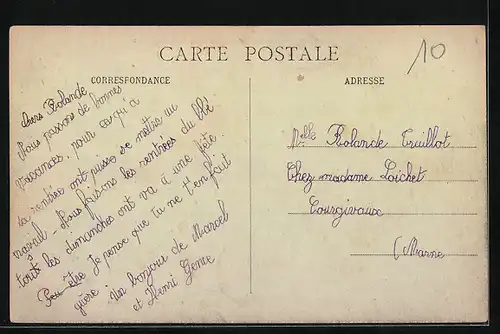 CARTE POSTALE
10
CORRESPONDANCE
ADRESSE
chere Rolande
Nous passons de bonnes
vacances. pour ce qu'à
la rentrée ont puisse se mettre au
travail. Nous faisons les rentrées du blé
touts les dimanches ont va à une fête
Peu-être Je pense que tu ne t'en fait
guère Un bonjour de Marcel
et Henri Gence
Melle Rolande Truillot
Chez madame Loichet
Courgivaux
(Marne